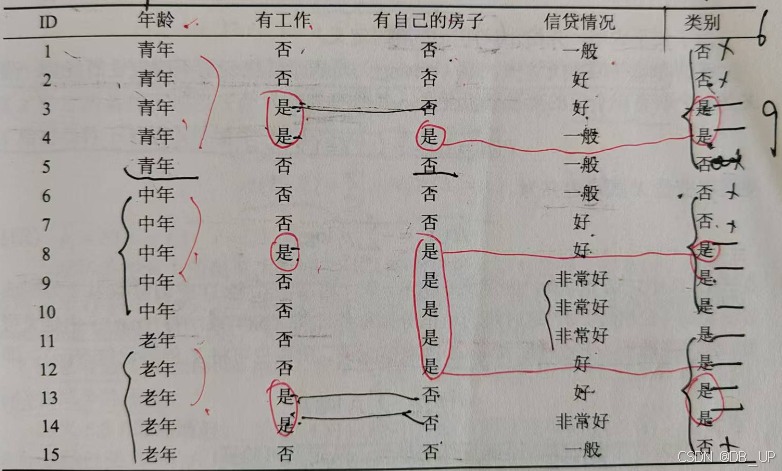 ID 年龄 有工作 有自己的房子 信贷情况 类别
1 青年 否 否 一般 否
2 青年 否 否 好 否
3 青年 是 否 好 是
4 青年 是 是 一般 是
5 青年 否 否 一般 否
6 中年 否 否 一般 否
7 中年 否 否 好 否
8 中年 是 是 好 是
9 中年 否 是 非常好 是
10 中年 否 是 非常好 是
11 老年 否 是 非常好 是
12 老年 否 是 好 是
13 老年 是 否 好 是
14 老年 是 否 非常好 是
15 老年 否 否 一般 否
6
9
CSDN @DB_UP